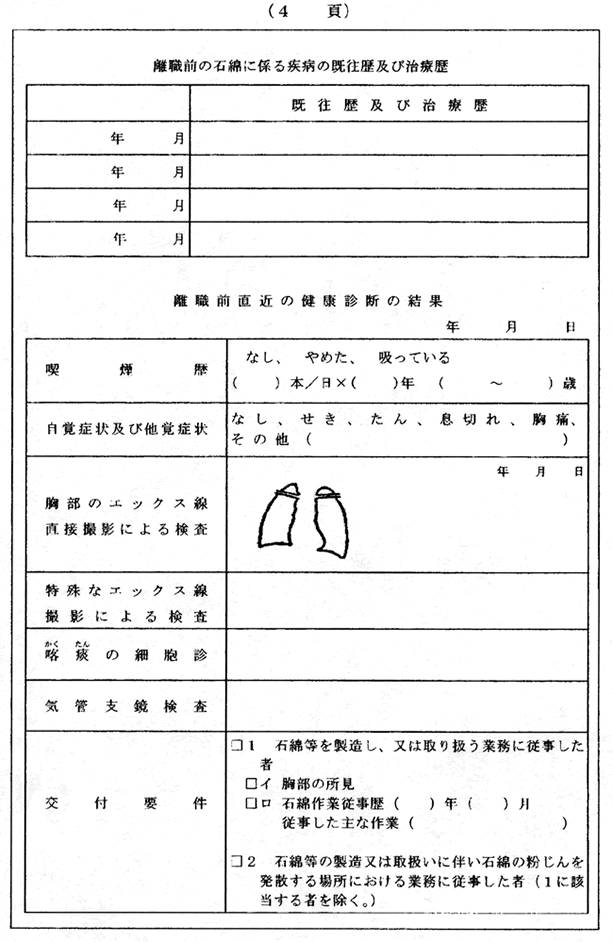 （４　頁）
離職前の石綿に係る疾病の既往歴及び治療歴
既往歴及び治療歴
年　月
年　月
年　月
年　月
離職前直近の健康診断の結果
年　月　日
喫煙歴
なし、　やめた、　吸っている
（　　）本／日×（　　）年　（　　～　　）歳
自覚症状及び他覚症状
なし、せき、たん、息切れ、胸痛、
その他（　　　　）
年　月　日
胸部のエックス線
直接撮影による検査
特殊なエックス線
撮影による検査
かく　たん
喀痰の細胞診
気管支鏡検査
交付要件
□１　石綿等を製造し、又は取り扱う業務に従事した
者
□イ　胸部の所見
□ロ　石綿作業従事歴（　　）年（　　）月
従事した主な作業（　　　　）
□２　石綿等の製造又は取扱いに伴い石綿の粉じんを
発散する場所における業務に従事した者（１に該
当する者を除く。）